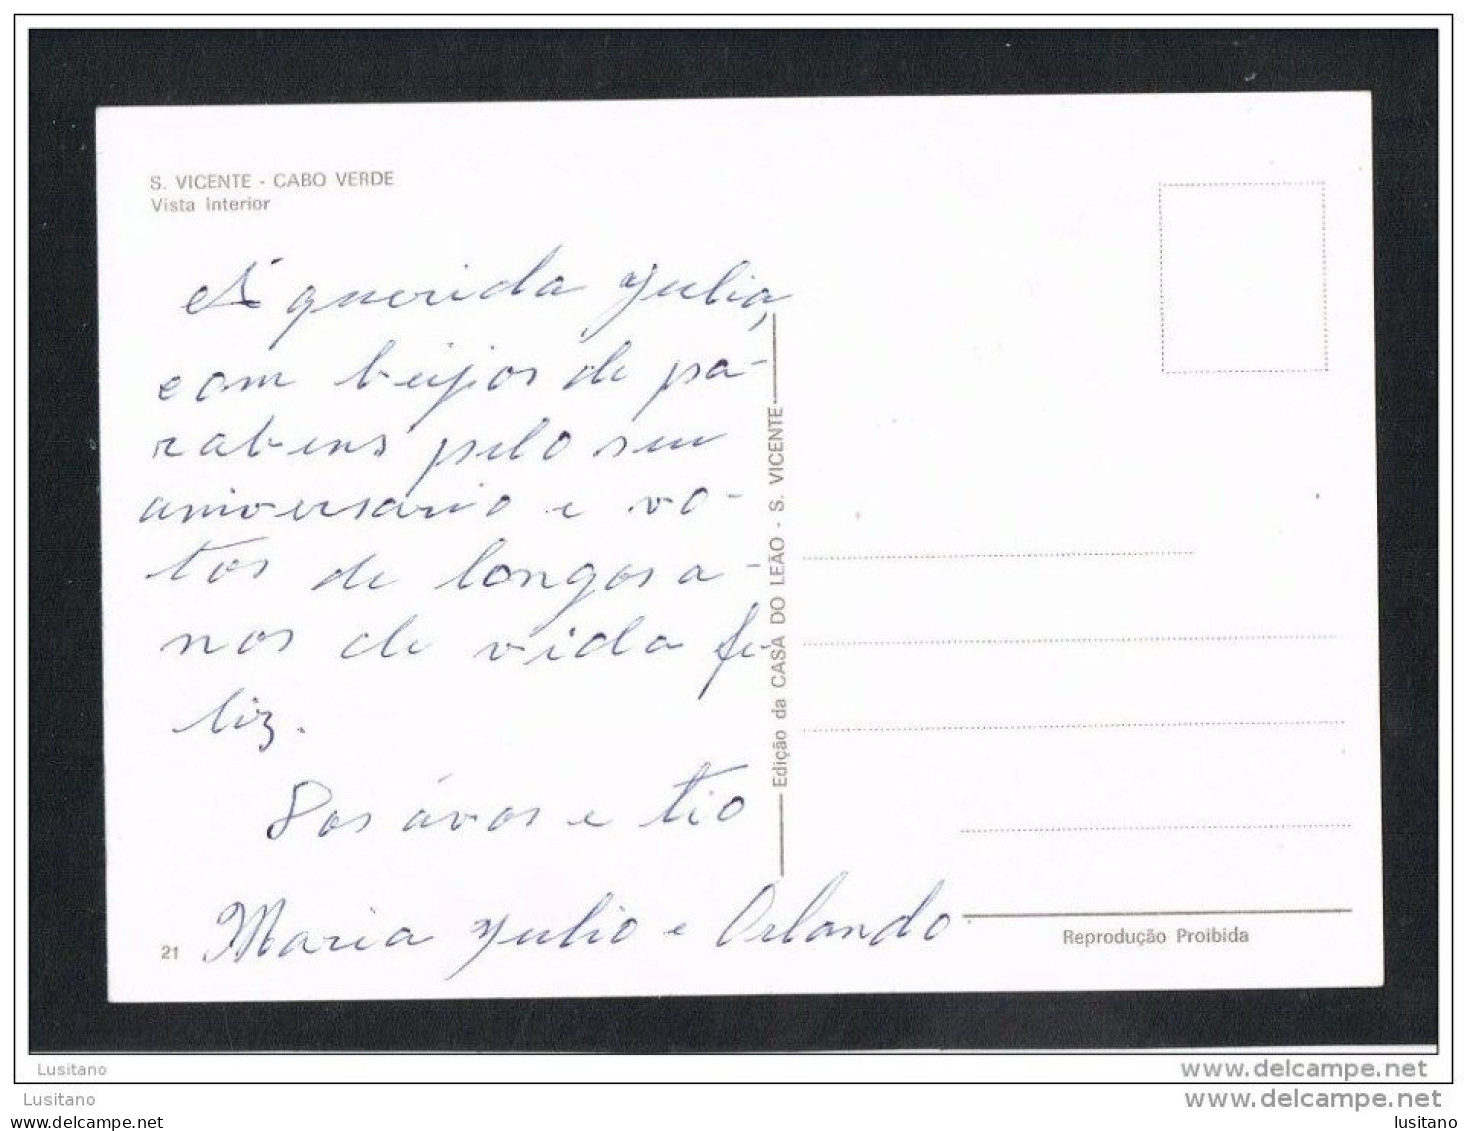 S. VICENTE - CABO VERDE
Vista Interior
Á querida Julia,
com beijos de pa-
rabens pelo seu
aniversario e vo-
tos de longos a-
nos de vida fe
liz.
Dos ávos e tio
Maria Julio e Orlando
21
Edição da CASA DO LEÃO - S. VICENTE
Reprodução Proibida
Lusitano
www.delcampe.net
Lusitano
www.delcampe.net
lusitano
lusitano